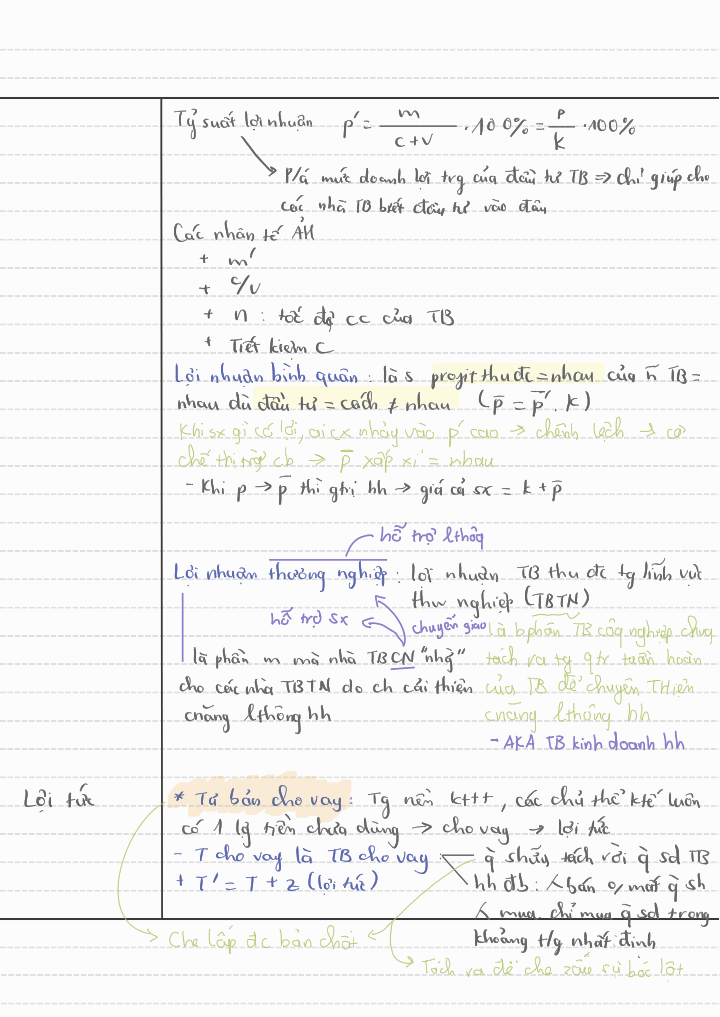 Tỷ suất lợi nhuận p' = m / (c+v) . 100% = p / k . 100%
P/á mức doanh lợi trg của đầu tư TB ⇒ chỉ giúp cho
các nhà TB biết đầu tư vào đâu
Các nhân tố ẢH
+ m'
+ c/v
+ n : tốc độ cc của TB
+ Tiết kiệm c
Lợi nhuận bình quân : là s profit thu đc = nhau của ñ TB =
nhau dù đầu tư = cách ≠ nhau (p̄ = p̄'. k)
Khi sx gì có lời, ai cx nhảy vào p' cao → chênh lệch → cơ
chế thị trg cb → p̄ xấp xỉ = nhau
- Khi p → p̄ thì gtrị hh → giá cả sx = k + p̄
hỗ trợ lthôg
Lợi nhuận thương nghiệp : lợi nhuận TB thu đc tg lĩnh vực
thw nghiệp (TBTN)
hỗ trợ sx
chuyển giao
là bphận TB côg nghiệp chưg
là phần m mà nhà TBCN "nhg"
tách ra tg qtr tuần hoàn
cho các nhà TBTN do ch cải thiên
của TB để chuyên THiện
cnăng lthông hh
cnăng lthông hh
- AKA TB kinh doanh hh
Lợi tức
* Tư bản cho vay : Tg nền kttt, các chủ thể ktế luôn
có 1 lg tiền chưa dùng → cho vay → lợi tức
- T cho vay là TB cho vay : q̀ shữu tách rời q̀ sd TB
+ T' = T + z (lợi tức)
hh đb :人 bán 0/ mất q̀ sh
人 mua chỉ mua q̀ sd trong
khoảng t/g nhất định
Che lấp đc bản chất
Tách ra để che zấu sự bóc lột